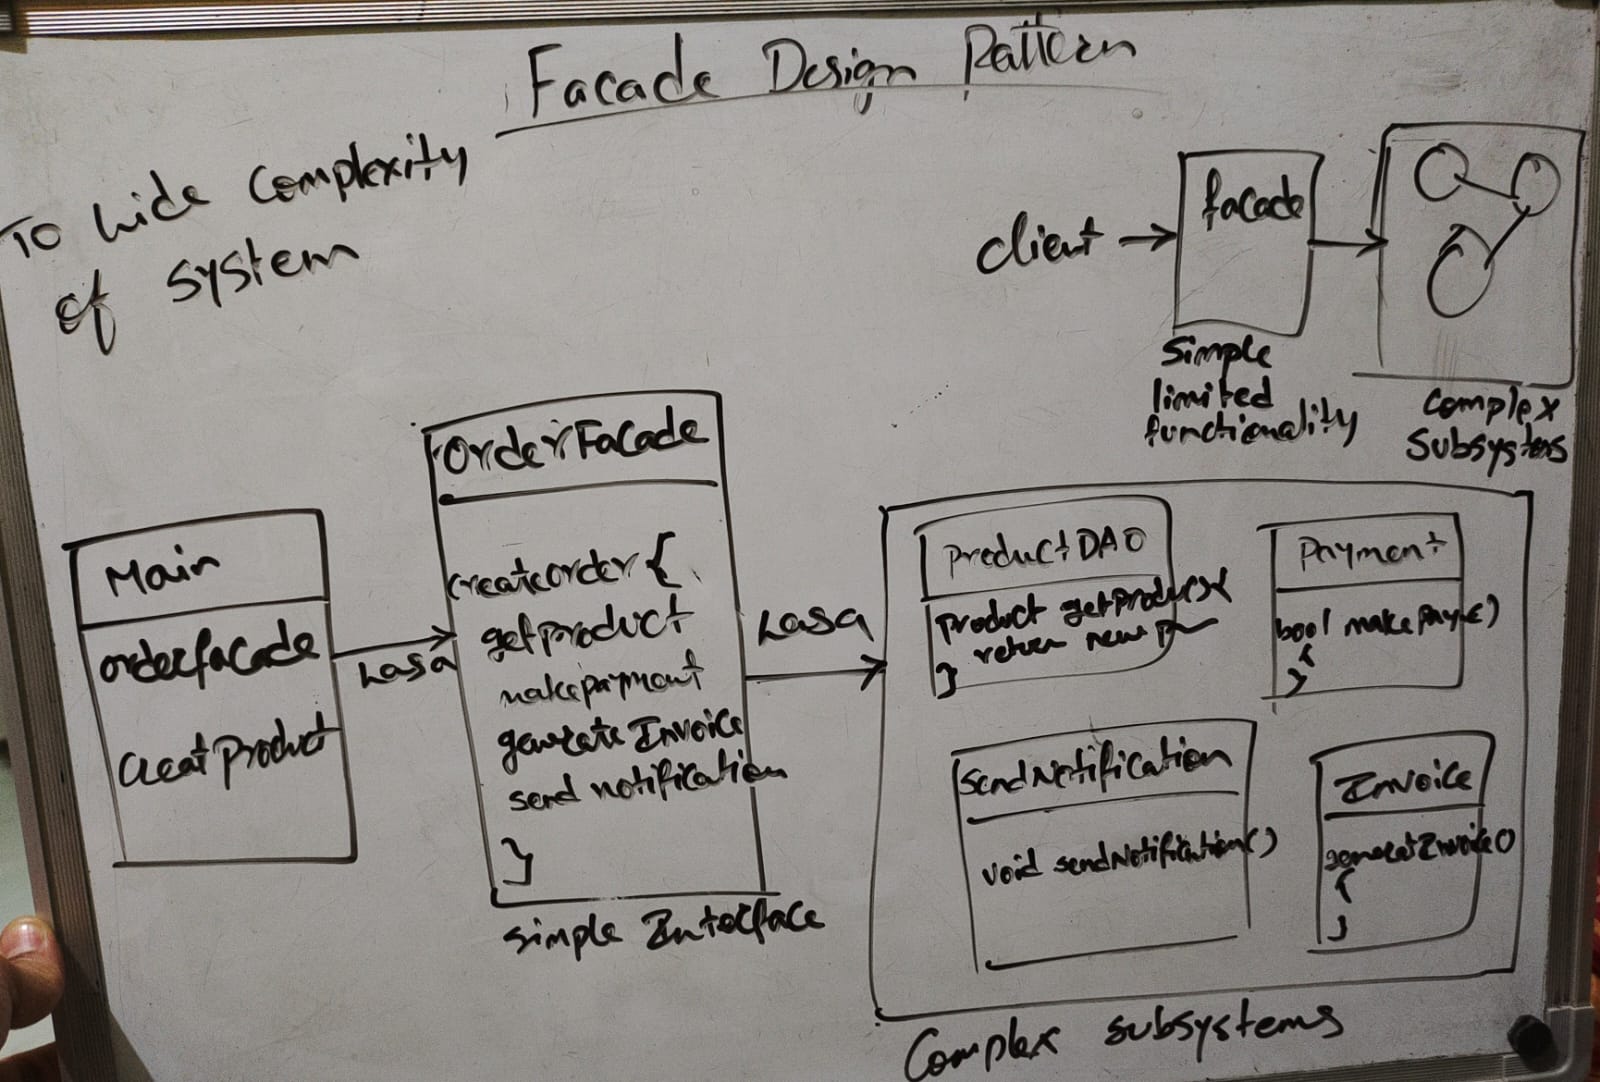 Facade Design Pattern
To hide complexity
of system
client
facade
simple
limited
functionality
complex
subsystems
Main
orderfacade
creatProduct
hasa
OrderFacade
createorder {
getproduct
makepayment
generateInvoice
send notification
}
simple Interface
hasa
ProductDAO
product getProduct(){
return new P
}
Payment
bool makepay()
{
}
SendNotification
void sendNotification()
Invoice
generatInvoice()
{
}
Complex subsystems